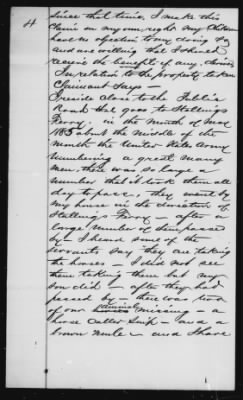 4
Since that time, I make this
claim in my own right my Children
have no objection to my doing so
and are willing that I should
receive the benefits if any,
In relation to the property taken
Claimant Says —
I reside close to the Public
Road that goes to Stallings
Ferry. in the month of May
1865 about the middle of the
month the United States Army
numbering a great many
men, there was so large a
number that it took them all
day to pass — they went by
my house in the direction of
Stallings Ferry — after a
large number of them passed
by — I heard some of the
servants say they are taking
the horses — I did not see
them taking them but my
son did — after they had
passed by — there was two
of our animals missing — a
horse called Snip — and a
brown mule — and I have